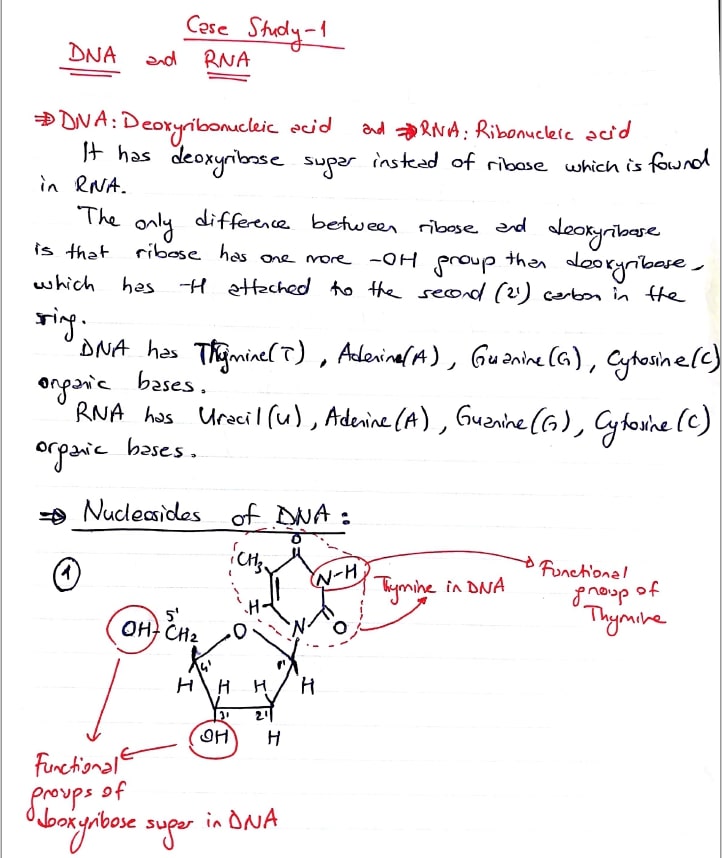 Case Study-1
DNA and RNA
⇒ DNA: Deoxyribonucleic acid and ⇒ RNA: Ribonucleic acid
It has deoxyribose sugar instead of ribose which is found
in RNA.
The only difference between ribose and deoxyribose
is that ribose has one more -OH group than deoxyribose,
which has -H attached to the second (2') carbon in the
ring.
DNA has Thymine(T), Adenine(A), Guanine(G), Cytosine(C)
organic bases.
RNA has Uracil(U), Adenine(A), Guanine(G), Cytosine(C)
organic bases.
⇒ Nucleosides of DNA:
1
O
CH3
N-H
Functional
group of
Thymine
Thymine in DNA
H
N
O
OH-
5'
CH2
O
4'
1'
H H H H
3' 2'
OH H
Functional
groups of
deoxyribose sugar in DNA